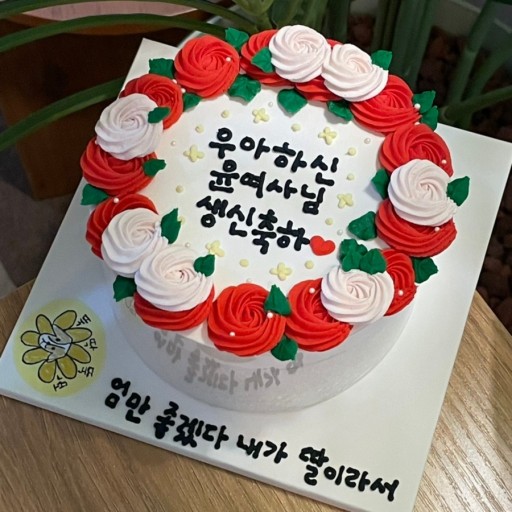 우아하신
윤여사님
생신축하
엄만 좋겠다 내가 딸이라서